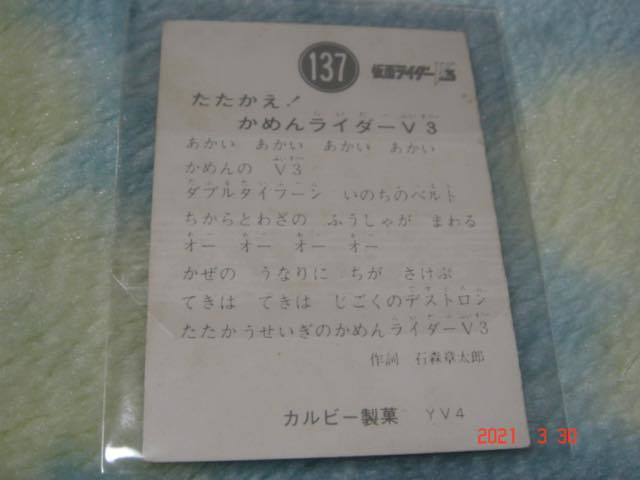 137
仮面ライダー V3
たたかえ！
かめんライダーV3
あかい あかい あかい あかい
かめんの V3
ダブルタイフーン いのちのベルト
ちからとわざの ふうしゃが まわる
オー オー オー オー
かぜの うなりに ちが さけぶ
てきは てきは じごくのデストロン
たたかうせいぎのかめんライダーV3
作詞 石森章太郎
カルビー製菓 YV4
2021 3 30